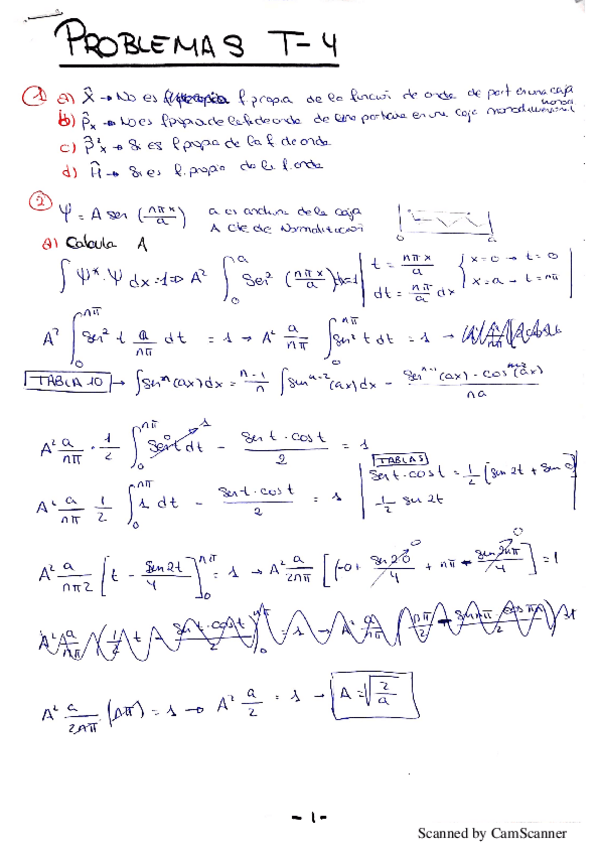 PROBLEMAS T-4
① a) X̂ → No es f. propia de la función de onda de part en una caja
b) P̂x → No es f propia de la f de onda de una part en una caja monodimensional
c) P̂²x → Si es f. propia de la f. de onda
d) Ĥ → Si es f. propia de la f. onda
② Ψ = A sen (nπx/a) a es anchura de la caja
A cte de Normalización
0 a
a) Calcula A
∫ Ψ* · Ψ dx = 1 => A² ∫₀ᵃ Sen² (nπx/a) dx = 1 | t = nπx/a { x = 0 → t = 0
dt = nπ/a dx x = a → t = nπ
A² ∫₀ⁿᵖⁱ Sen² t a/nπ dt = 1 → A² a/nπ ∫₀ⁿᵖⁱ sen² t dt = 1 →
TABLA 10 → ∫ senⁿ (ax) dx = n-1/n ∫ senⁿ⁻² (ax) dx - senⁿ⁻¹ (ax) · cos (ax) / na
A² a/nπ · 1/2 ∫₀ⁿᵖⁱ Sen⁰ t dt - sen t · cos t / 2 = 1
TABLAS
A² a/nπ 1/2 ∫₀ⁿᵖⁱ 1 dt - sen t · cos t / 2 = 1 | sen t · cos t = 1/2 (sen 2t + sen 0)
1/2 sen 2t
A² a/nπ2 [t - sen 2t/4]₀ⁿᵖⁱ = 1 → A² a/2nπ [(-0 + sen 2·0/4 + nπ - sen 2nπ/4] = 1
A² a/2nπ (nπ) = 1 → A² a/2 = 1 → A = √(2/a)
- 1 -
Scanned by CamScanner